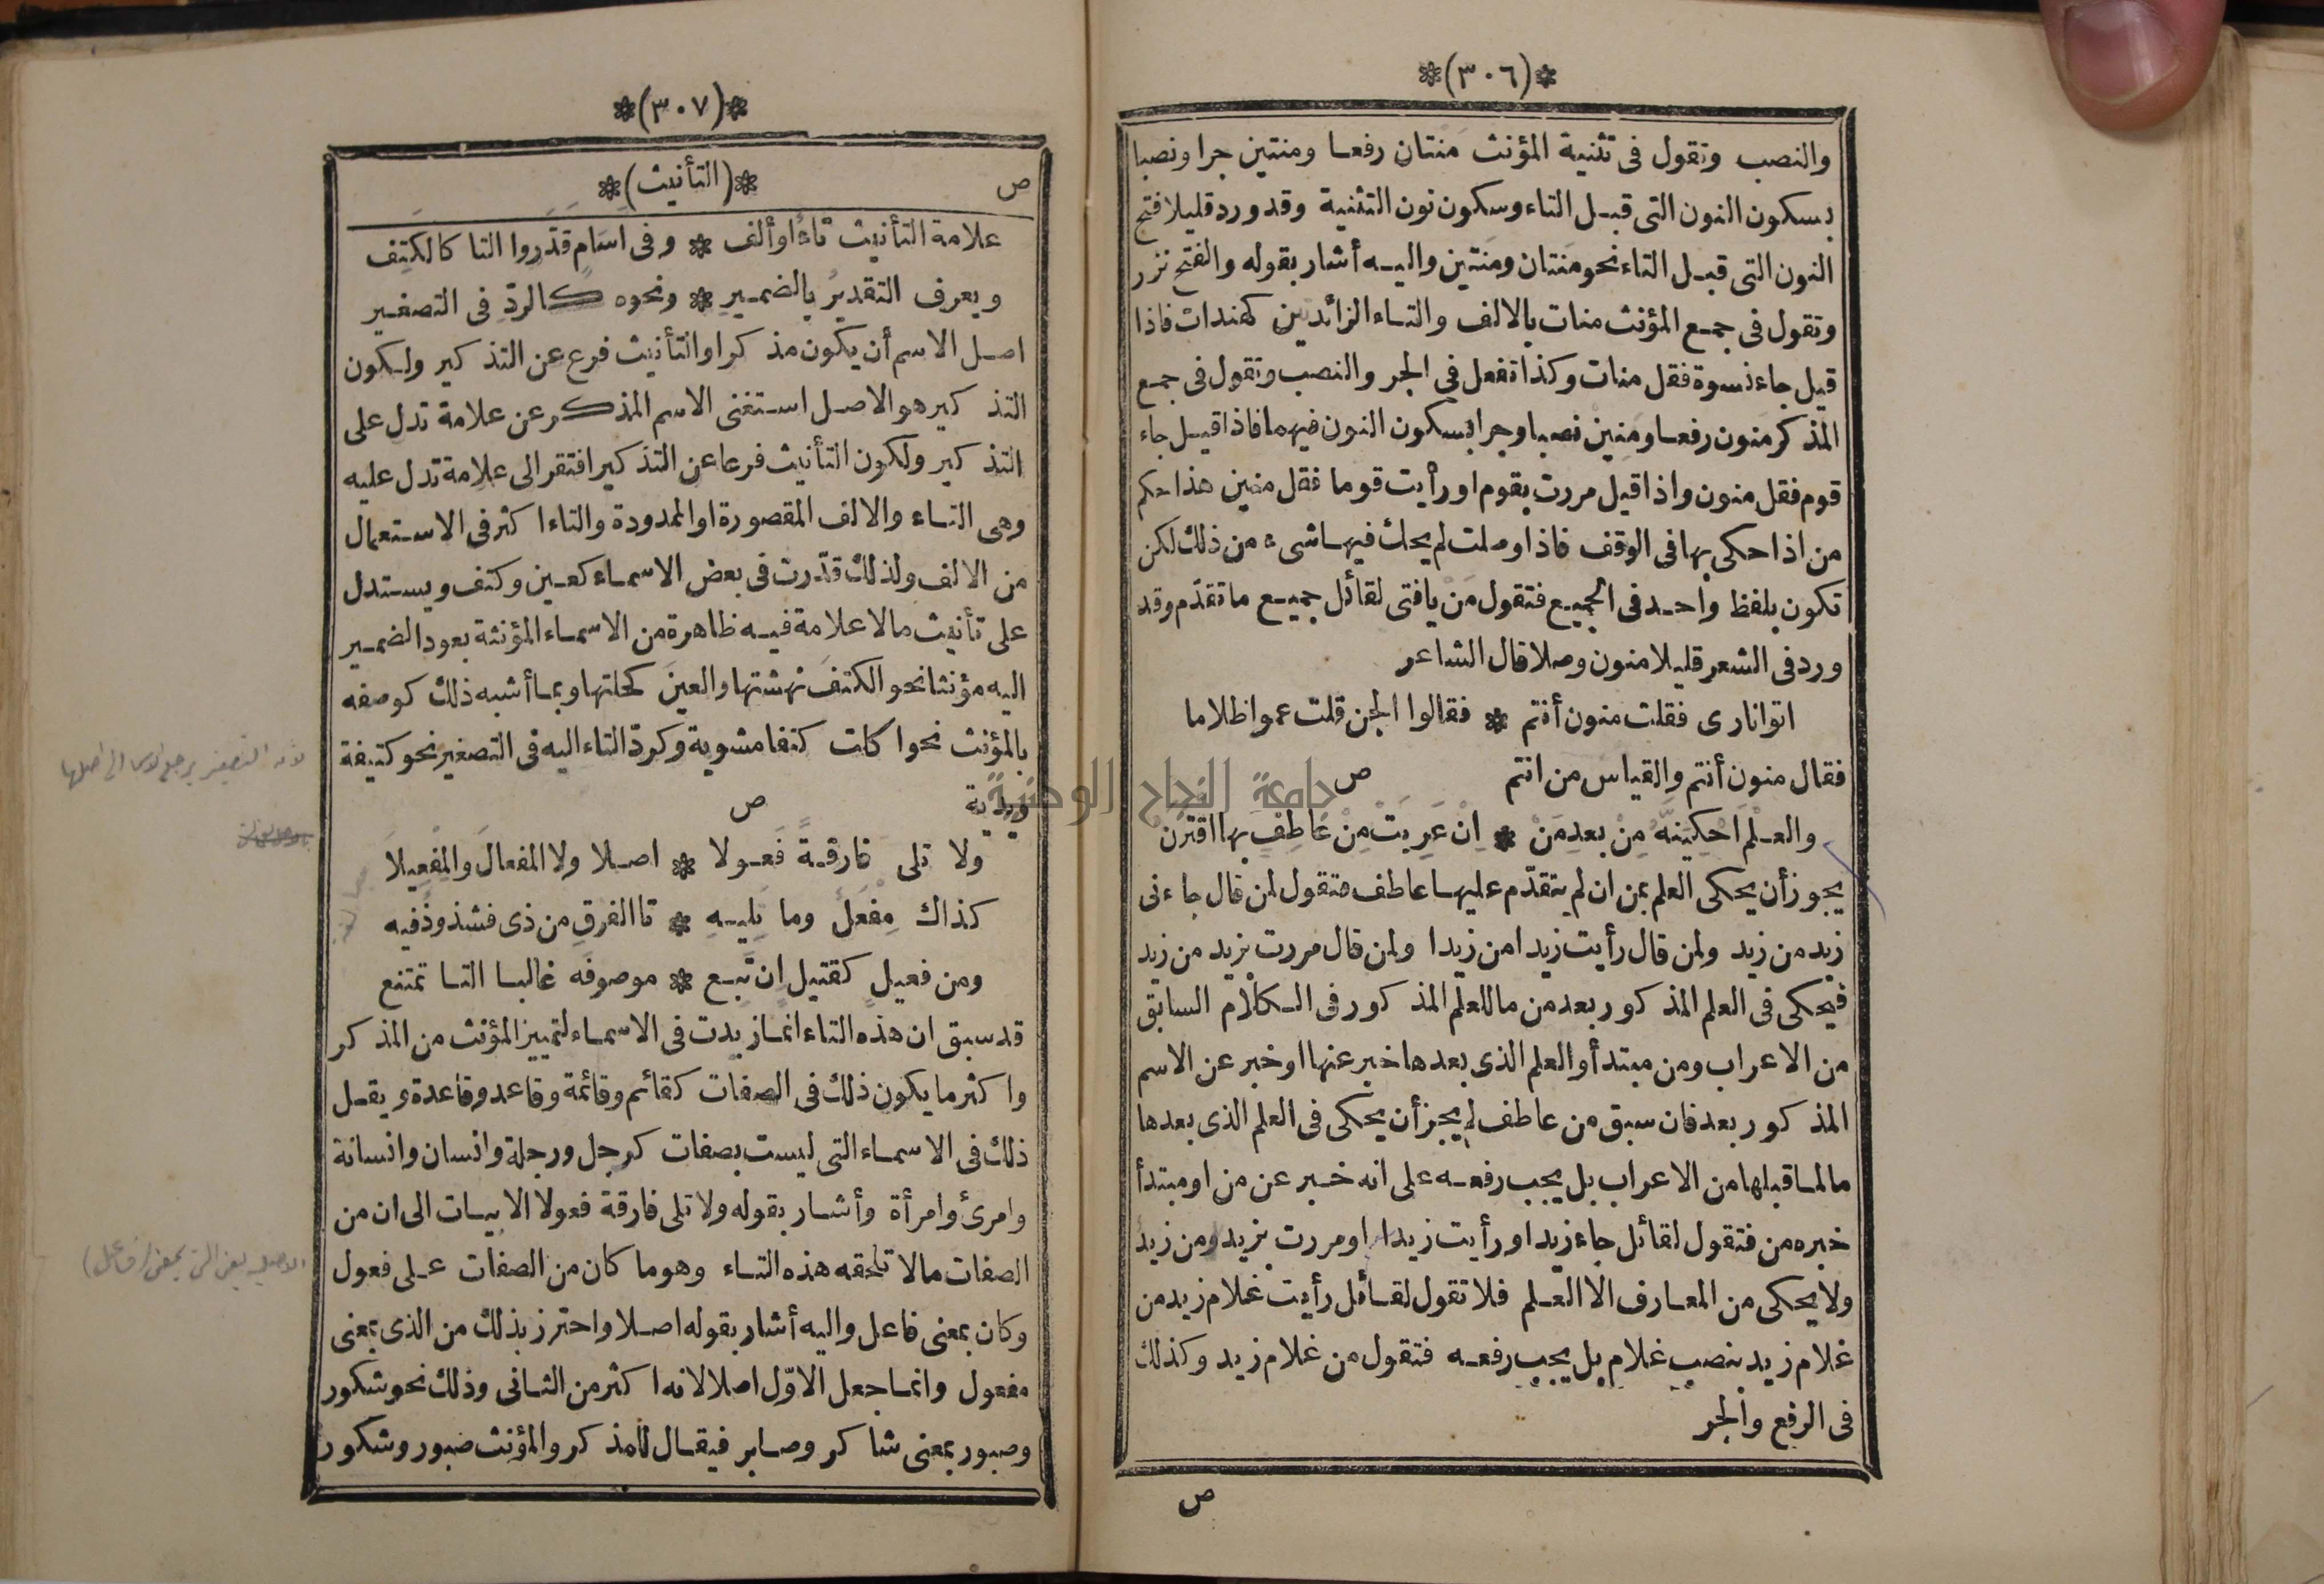 *(٣٠٦)*
والنصب وتقول فى تثنية المؤنث مَنْتان رفعا ومنتين جرا ونصبا
بسكون النون التى قبل التاء وسكون نون التثنية وقد ورد قليلا فتح
النون التى قبل التاء نحو مَنَتان ومَنَتين واليه أشار بقوله والفتح نزر
وتقول فى جمع المؤنث منات بالالف والتاء الزائدتين كهندات فاذا
قيل جاء نسوة فقل منات وكذا تفعل فى الجر والنصب وتقول فى جمع
المذكر منون رفعا ومنين نصبا وجرا بسكون النون فيهما فاذا قيل جاء
قوم فقل منون واذا قيل مررت بقوم او رأيت قوما فقل منين هذا حكم
من اذا حكى بها فى الوقف فاذا وصلت لم يحك فيها شىء من ذلك لكن
تكون بلفظ واحد فى الجميع فتقول مَنْ يا فتى لقائل جميع ما تقدّم وقد
ورد فى الشعر قليلا منون وصلا قال الشاعر
اتوا نارى فقلت منون أنتم * فقالوا الجن قلت عموا ظلاما
فقال منون أنتم والقياس من انتم ص
والعلَمَ احْكِيَنَّهُ مِنْ بعدِ مَنْ * اِنْ عَرِيَتْ مِنْ عَاطِفٍ بها اقترنْ
يجوز أن يحكى العلم بمن ان لم يتقدّم عليها عاطف فتقول لمن قال جاءنى
زيد من زيد ولمن قال رأيت زيدا من زيدا ولمن قال مررت بزيد من زيد
فيحكى فى العلم المذكور بعد من ما للعلم المذكور فى الكلام السابق
من الاعراب ومن مبتدأ والعلم الذى بعدها خبر عنها او خبر عن الاسم
المذكور بعد فان سبق من عاطف لم يجز أن يحكى فى العلم الذى بعدها
ما لما قبلها من الاعراب بل يجب رفعه على انه خبر عن من او مبتدأ
خبره من فتقول لقائل جاء زيد او رأيت زيدا او مررت بزيد ومن زيد
ولا يحكى من المعارف الا العلم فلا تقول لقائل رأيت غلام زيد من
غلام زيد بنصب غلام بل يجب رفعه فتقول من غلام زيد وكذلك
فى الرفع والجر
ص
*(٣٠٧)*
ص *(التأنيث)*
علامة التأنيث تاءٌ او ألف * وفى اسَامٍ قدّروا التا كالكَتِف
ويعرف التقديرُ بالضمير * ونحوه كالردّ فى التصغير
اصل الاسم أن يكون مذكرا والتأنيث فرع عن التذكير ولكون
التذكير هو الاصل استغنى الاسم المذكر عن علامة تدل على
التذكير ولكون التأنيث فرعا عن التذكير افتقر الى علامة تدل عليه
وهى التاء والالف المقصورة او الممدودة والتاء اكثر فى الاستعمال
من الالف ولذلك قدّرت فى بعض الاسماء كعين وكتف ويستدل
على تأنيث ما لا علامة فيه ظاهرة من الاسماء المؤنثة بعود الضمير
اليه مؤنثا نحو الكتفَ نهشتها والعينَ كحلتها وبما أشبه ذلك كوصفه
بالمؤنث نحو اكلت كتفا مشوية وكردّ التاء اليه فى التصغير نحو كتيفة
ويدية ص
ولا تلى فارقةً فَعولا * اصلا ولا المفعالَ والمِفعيلَا
كذاك مِفْعَلٌ وما يَليهِ * تا الفرقِ من ذى فشذوذٌ فيه
ومن فعيلٍ كقتيل اِن تَبع * موصوفَه غالبا التا تمتنع
قد سبق ان هذه التاء انما زيدت فى الاسماء لتمييز المؤنث من المذكر
واكثر ما يكون ذلك فى الصفات كقائم وقائمة وقاعد وقاعدة ويقل
ذلك فى الاسماء التى ليست بصفات كرجل ورجلة وانسان وانسانة
وامرئ وامرأة وأشار بقوله ولا تلى فارقة فعولا الابيات الى ان من
الصفات ما لا تلحقه هذه التاء وهو ما كان من الصفات على فعول
وكان بمعنى فاعل واليه أشار بقوله اصلا واحترز بذلك من الذى بمعنى
مفعول وانما جعل الاوّل اصلا لانه اكثر من الثانى وذلك نحو شكور
وصبور بمعنى شاكر وصابر فيقال للمذكر والمؤنث صبور وشكور
جامعة النجاح الوطنية